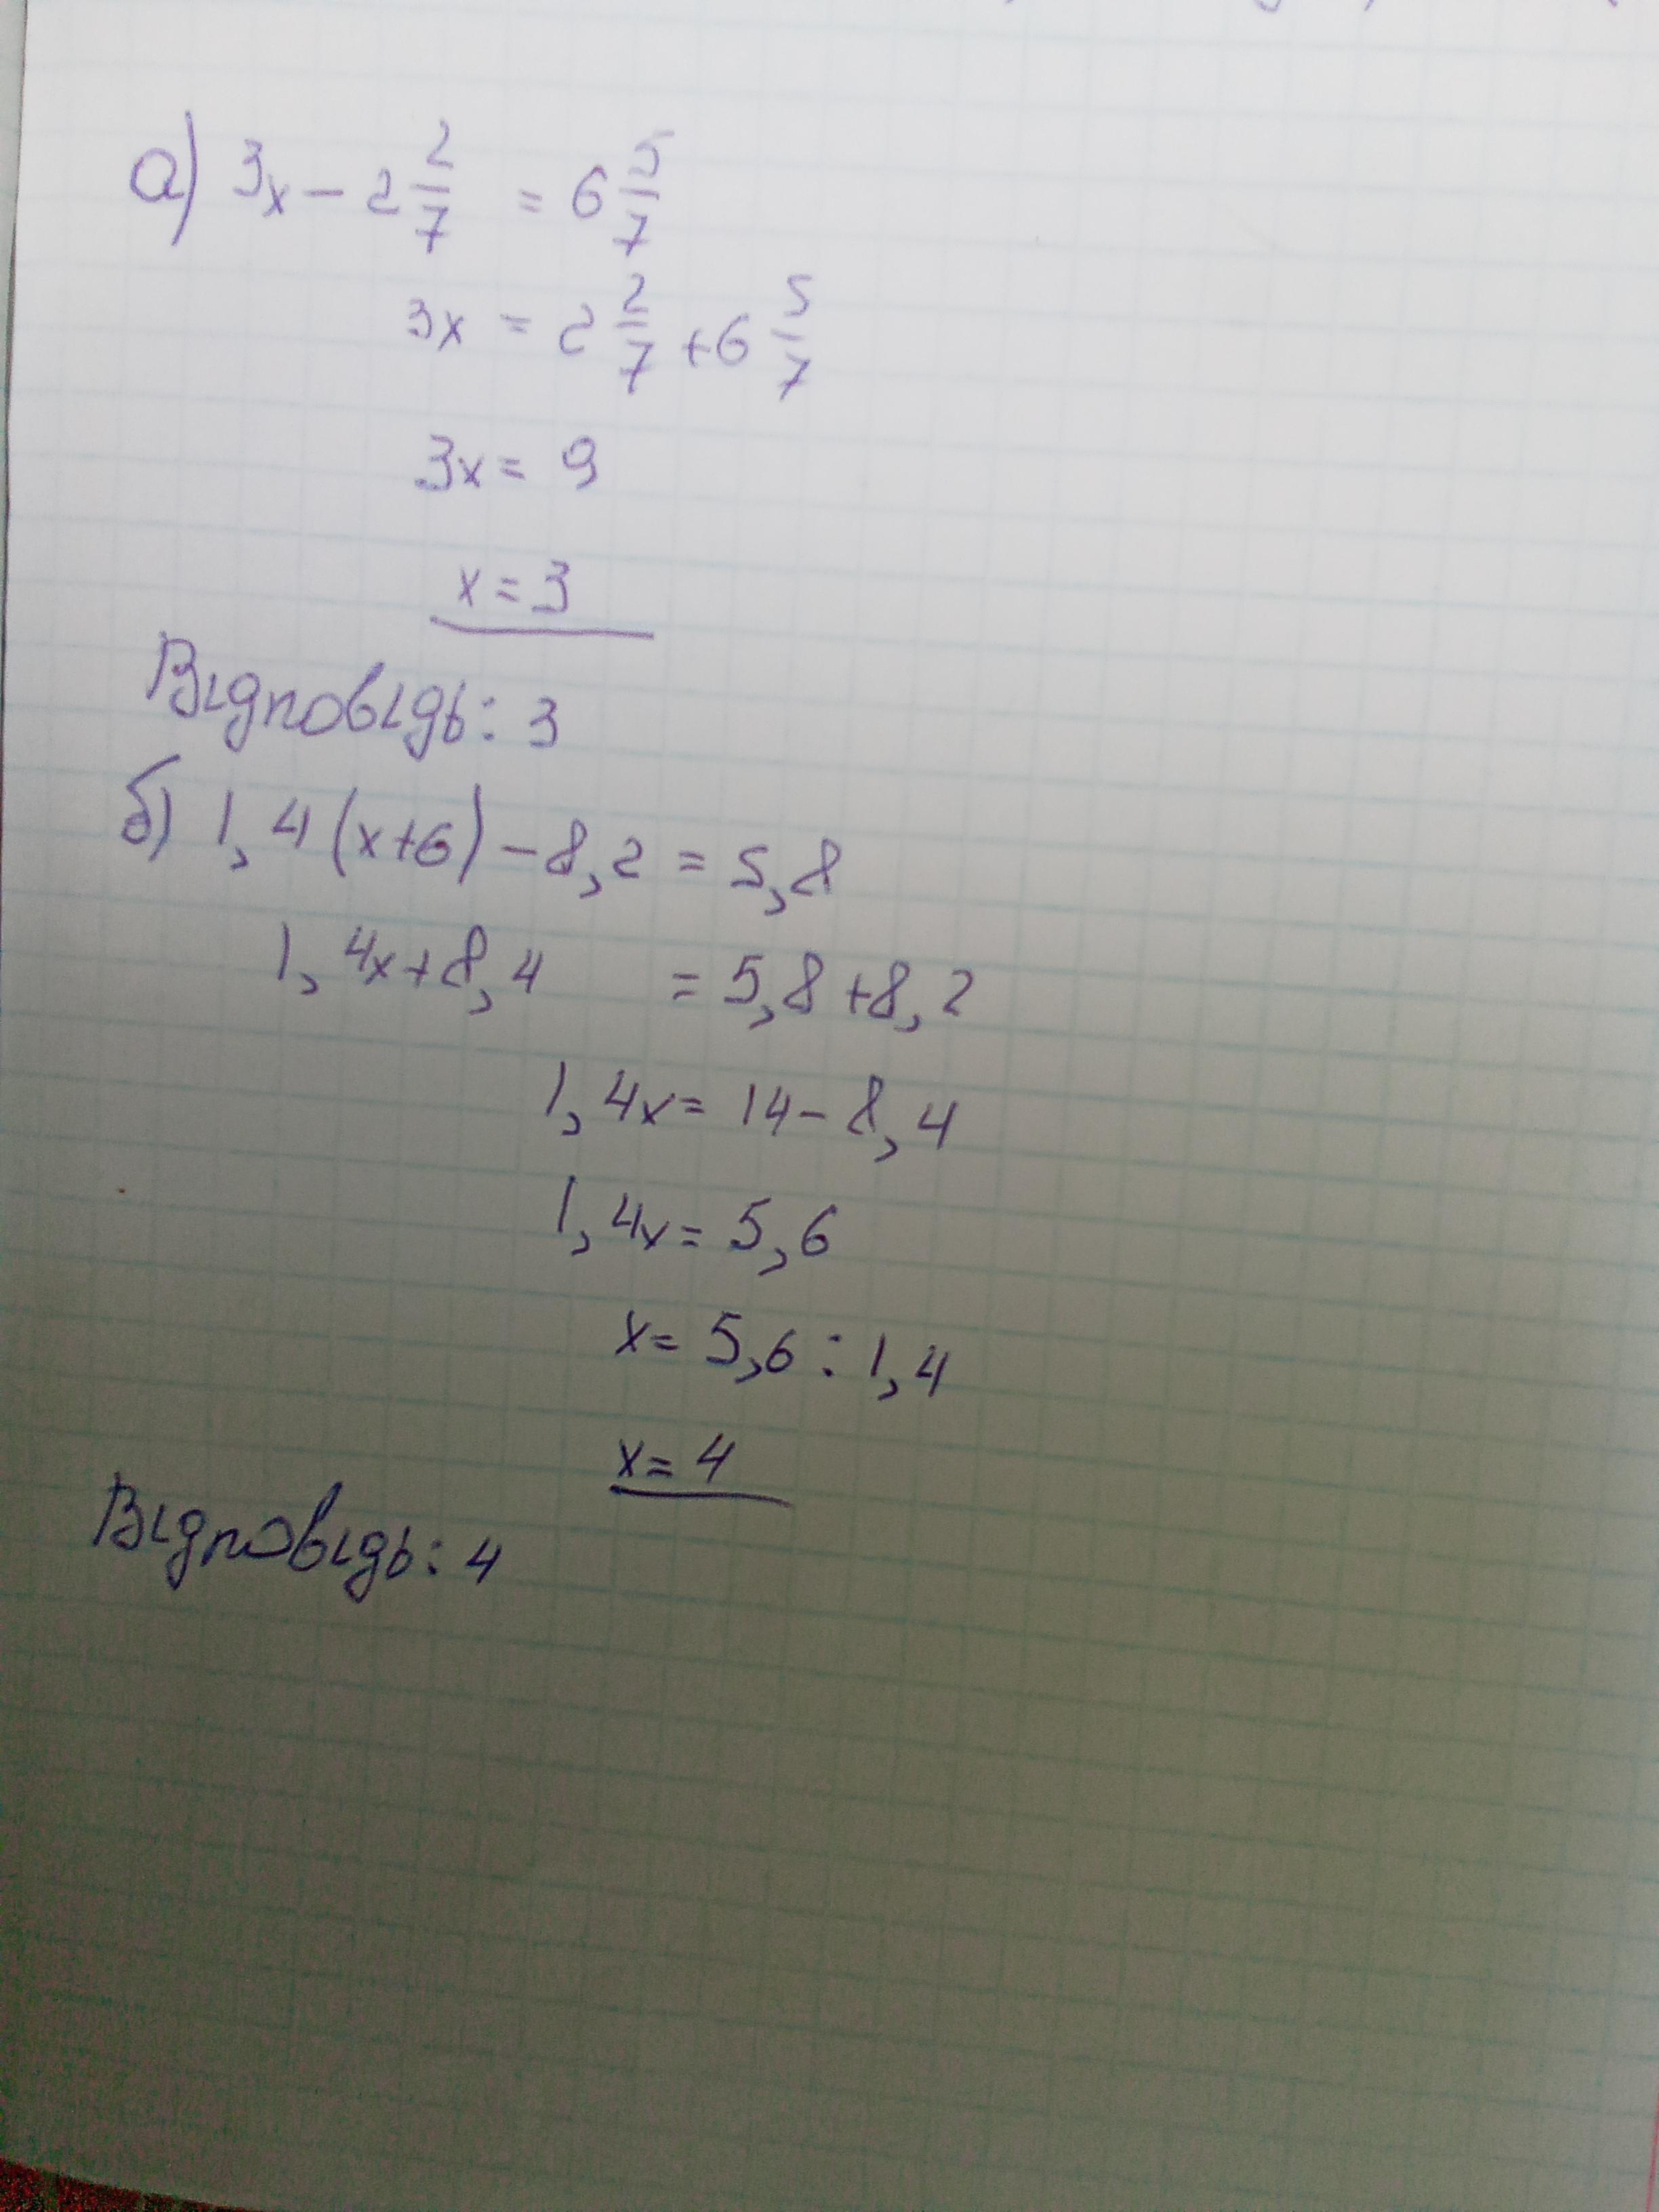 а) 3x - 2 2/7 = 6 5/7
3x = 2 2/7 + 6 5/7
3x = 9
x = 3
Відповідь: 3
б) 1,4(x+6) - 8,2 = 5,8
1,4x + 8,4 = 5,8 + 8,2
1,4x = 14 - 8,4
1,4x = 5,6
x = 5,6 : 1,4
x = 4
Відповідь: 4